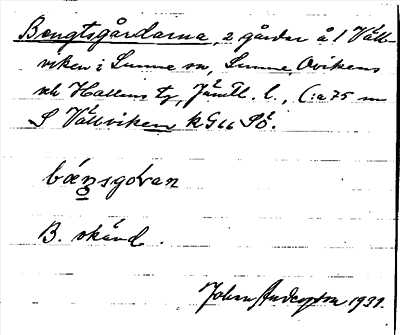 Bengtsgårdarna, 2 gårdar å 1 Väll-
viken i Sunne sn, Sunne, Ovikens
och Hallens tg, Jämtl. l., (: a 75 m
S Vällviken k G 66 Sö.
bœnsgóvan
B. okänd.
Johan Anderson 1931.